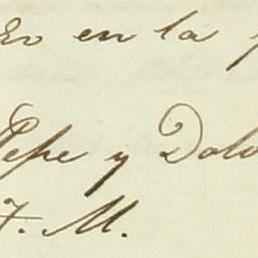 en la
Pepe y Dolo
F. M.